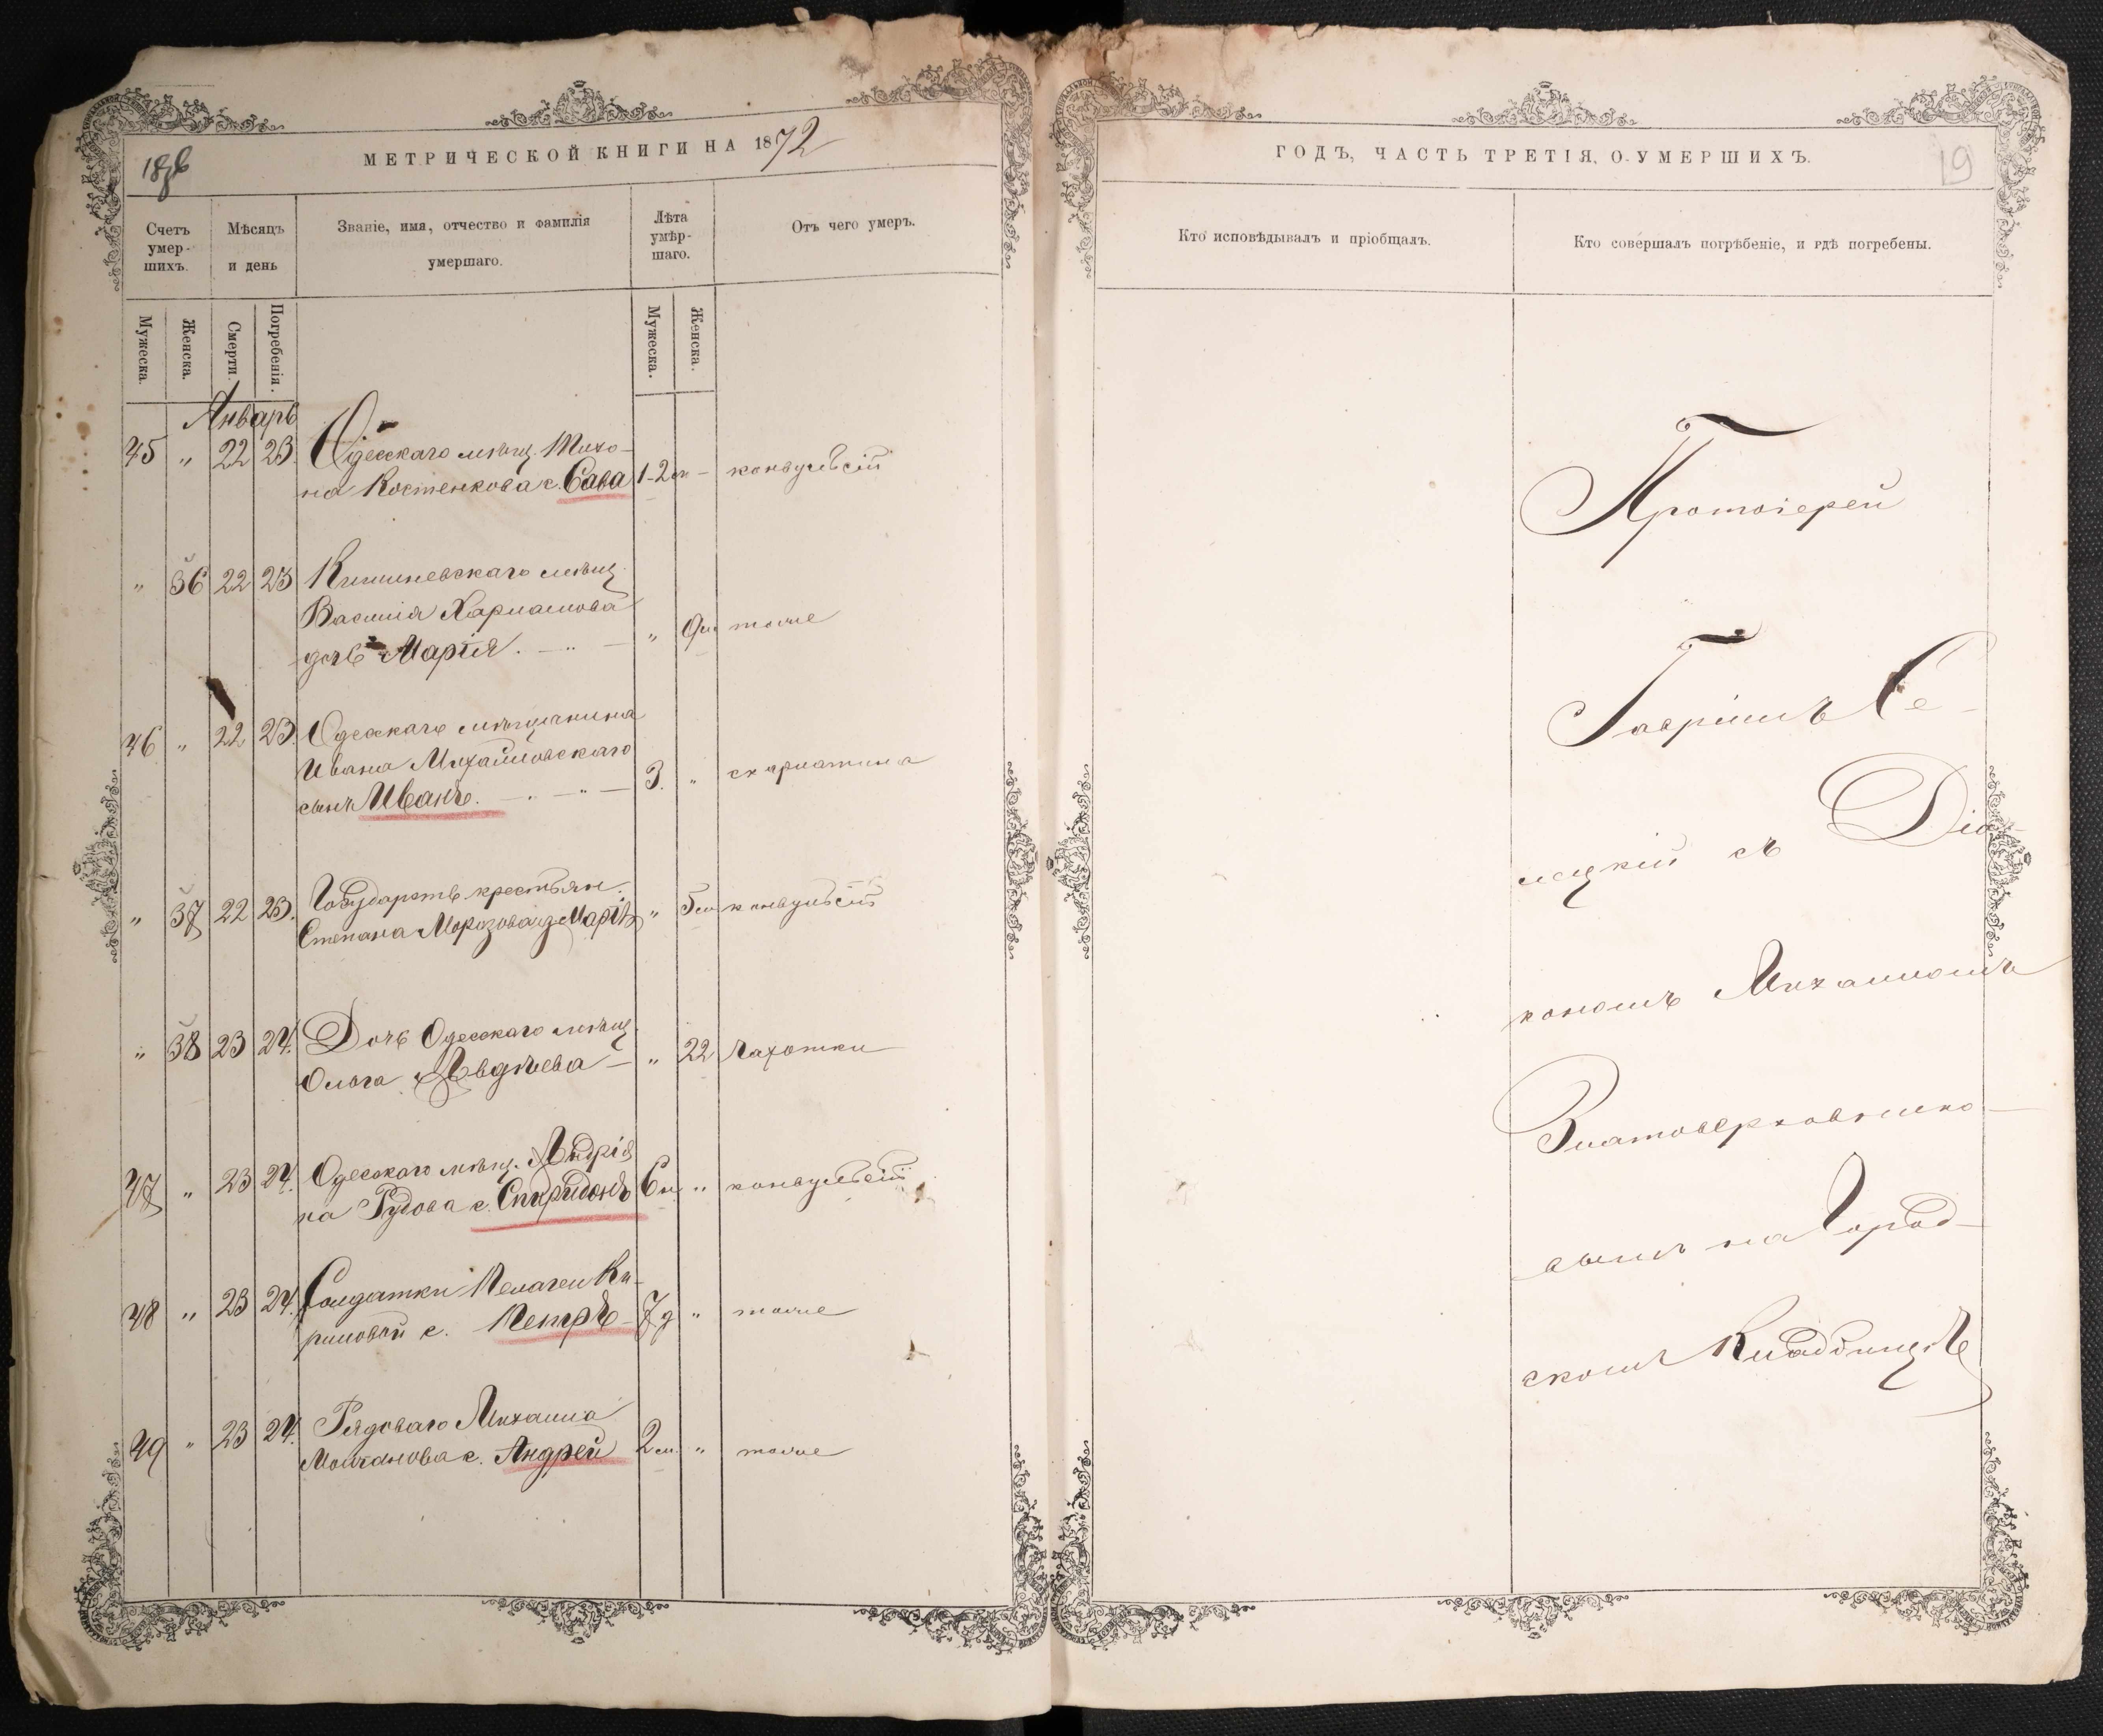 МЕТРИЧЕСКОЙ КНИГИ НА 1872
Счетъ умер-шихъ.
Мѣсяцъ и день
Званіе, имя, отчество и фамилія умершаго.
Лѣта умѣр-шаго.
Отъ чего умеръ.
Мужеска.
Женска.
Смерти.
Погребенія.
Мужеска.
Женска.
Январь
45 " 22 23. Одесскаго мѣщ. Тихо-
на Костенкова с. Сава 1-2 м - конвульсій
" 36 22 23 Кишиневскаго мѣщ.
Василія Харламова
дочь Марія. " 9м тоже
46 " 22 23. Одесскаго мѣщанина
Ивана Михайловскаго
сынъ Иванъ. 3. " скарлатина
" 37 22 23. Государств. крестьян.
Степана Морозова д. Марія " 5м конвульсій
" 38 23 24. Дочь Одесскаго мѣщ.
Ольга Авдѣева " 22 чахотки
47 " 23 24. Одесскаго мѣщ. Андрія
на Рудова с. Спиридонъ 6н. " конвульсій
48 " 23 24. Солдатки Пелагеи Ки-
риловой с. Петръ 7д " тоже
49 " 23 24. Рядоваго Михаила
Молчанова с. Андрей 2м. " тоже
ГОДЪ, ЧАСТЬ ТРЕТІЯ, О УМЕРШИХЪ.
19
Кто исповѣдывалъ и пріобщалъ.
Кто совершалъ погрѣбеніе, и гдѣ погребены.
Протоіерей
Гавріилъ Се-
лецкій съ Діа-
кономъ Михаиломъ
Златоверховнико-
вымъ на Город-
скомъ Кладбищѣ